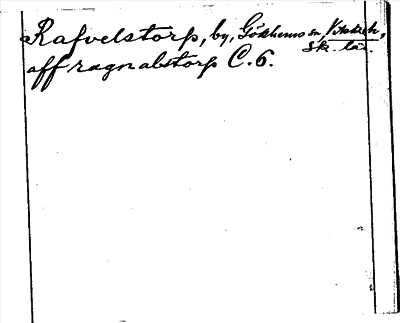 Rafvelstorp, by, Gökhems sn, Vilske h,
Sk. lä.
aff ragnabstorp C. 6.